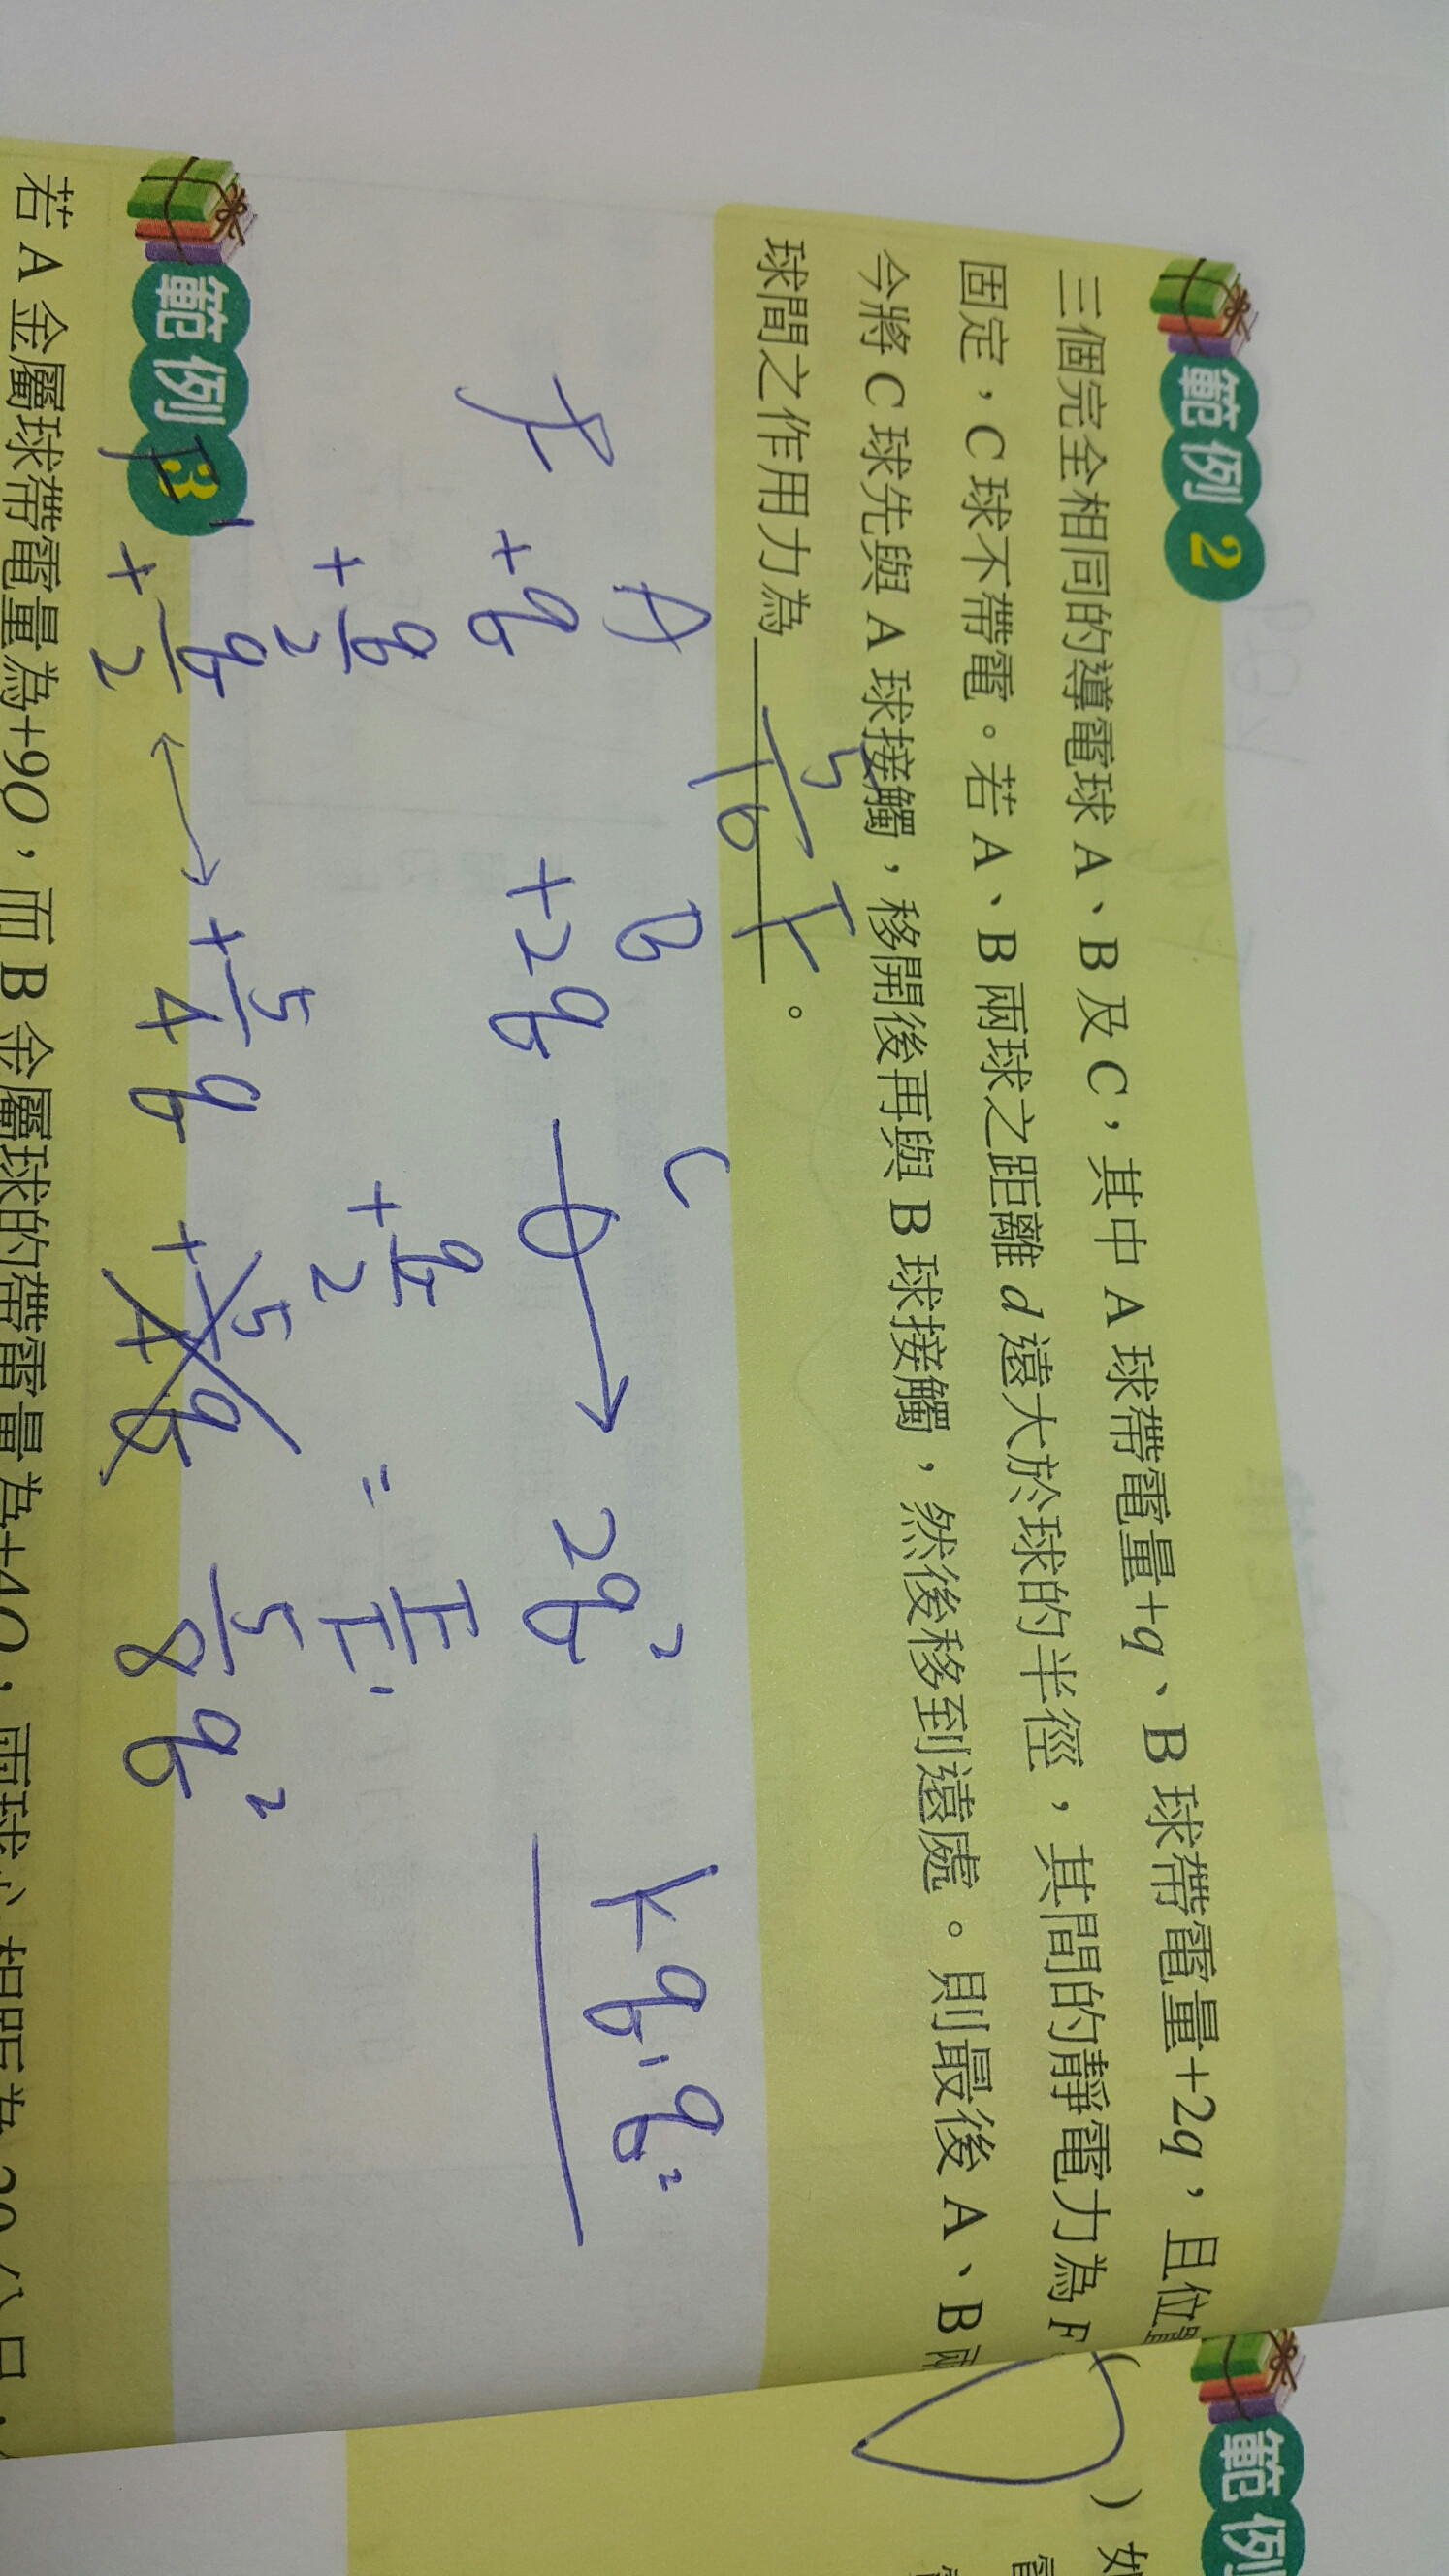 範例 2
三個完全相同的導電球 A、B 及 C,其中 A 球帶電量+q、B 球帶電量+2q,且位置
固定,C 球不帶電。若 A、B 兩球之距離 d 遠大於球的半徑,其間的靜電力為 F
今將 C 球先與 A 球接觸,移開後再與 B 球接觸,然後移到遠處。則最後 A、B 兩
球間之作用力為 5/16 F 。
A B C
F +q +2q 0 → 2q² kq₁q₂
+q/2 +q/2 = F/F'
F' +q/2 ↔ +5/4 q +5/4 q 5/8 q²
範例 3
若 A 金屬球帶電量為+9Q,而 B 金屬球的帶電量為+4Q;兩球心相距為
範例
) 如